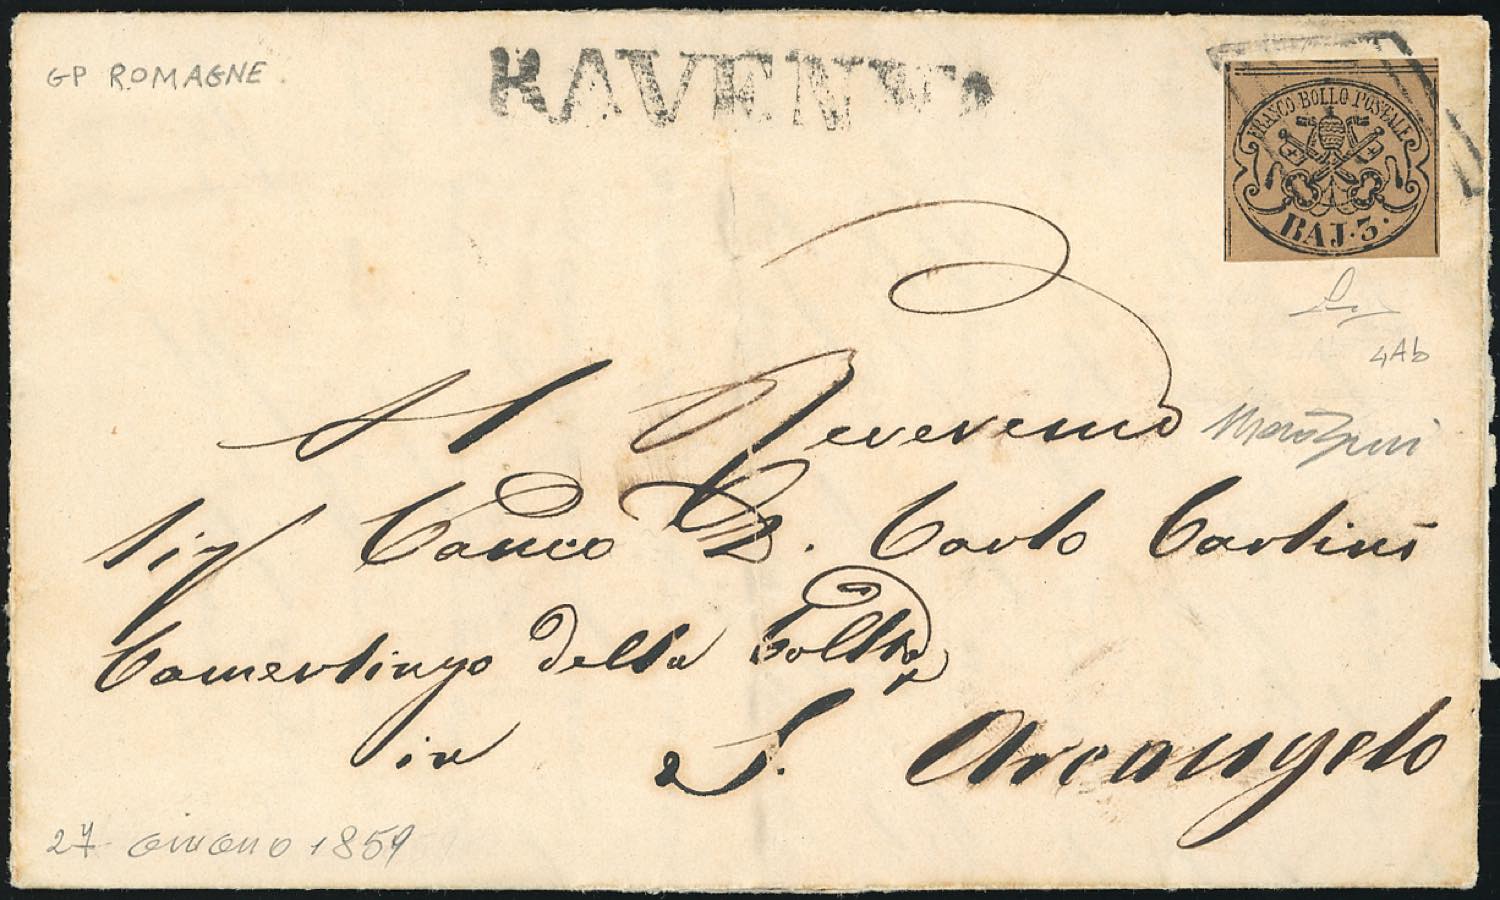 GP ROMAGNE
RAVENNA
FRANCO BOLLO POSTALE
BAJ. 3.
4Ab
Al Reverendo
Sig Canco D. Carlo Carlini
Camerlingo della Colleg
in S. Arcangelo
27 GIUGNO 1859